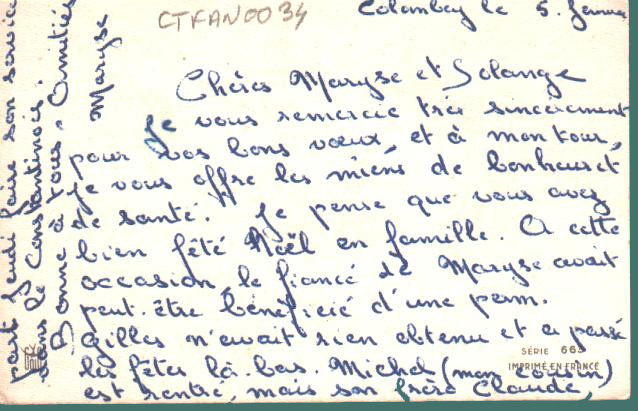 CTFAN0034
Colombey le 5. Janvier
Chères Maryse et Solange
Je vous remercie très sincèrement
pour vos bons vœux, et à mon tour,
je vous offre les miens de bonheur et
de santé. Je pense que vous avez
bien fêté Noël en famille. A cette
occasion, le fiancé de Maryse avait
peut-être bénéficié d'une perm.
Gilles n'avait rien obtenu et a passé
les fêtes là-bas. Michel (mon cousin)
est rentré, mais son frère Claude,
part jeudi faire son service
dans le Constantinois.
Bonne à tous. Amitiés
Maryse
SÉRIE 663
IMPRIMÉ EN FRANCE